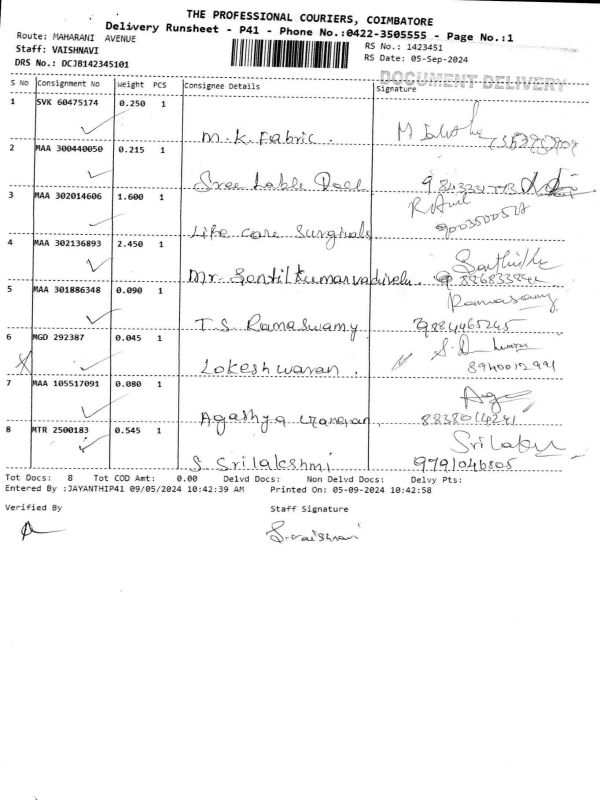 THE PROFESSIONAL COURIERS, COIMBATORE
Delivery Runsheet - P41 - Phone No.:0422-3505555 - Page No.:1
Route: MAHARANI AVENUE
RS No.: 1423451
Staff: VAISHNAVI
RS Date: 05-Sep-2024
DRS No.: DCJB142345101
DOCUMENT DELIVERY
S No Consignment No Weight PCS Consignee Details Signature
1 SVK 60475174 0.250 1
M.K. Fabric.
2 MAA 300440050 0.215 1
Sree Lable Doll
3 MAA 302014606 1.600 1
Life care Surgicals
4 MAA 302136893 2.450 1
Mr. Sentilkumarvadivelu.
5 MAA 301886348 0.090 1 Ramaswamy
T.S. Ramaswamy 9884465245
6 MGD 292387 0.045 1
Lokeshwaran. 8940012991
7 MAA 105517091 0.080 1
Agashya
8 MTR 2500183 0.545 1
S Srilakshmi 9791046805
Tot Docs: 8 Tot COD Amt: 0.00 Delvd Docs: Non Delvd Docs: Delvy Pts:
Entered By :JAYANTHIP41 09/05/2024 10:42:39 AM Printed On: 05-09-2024 10:42:58
Verified By Staff Signature
S.vaishnavi